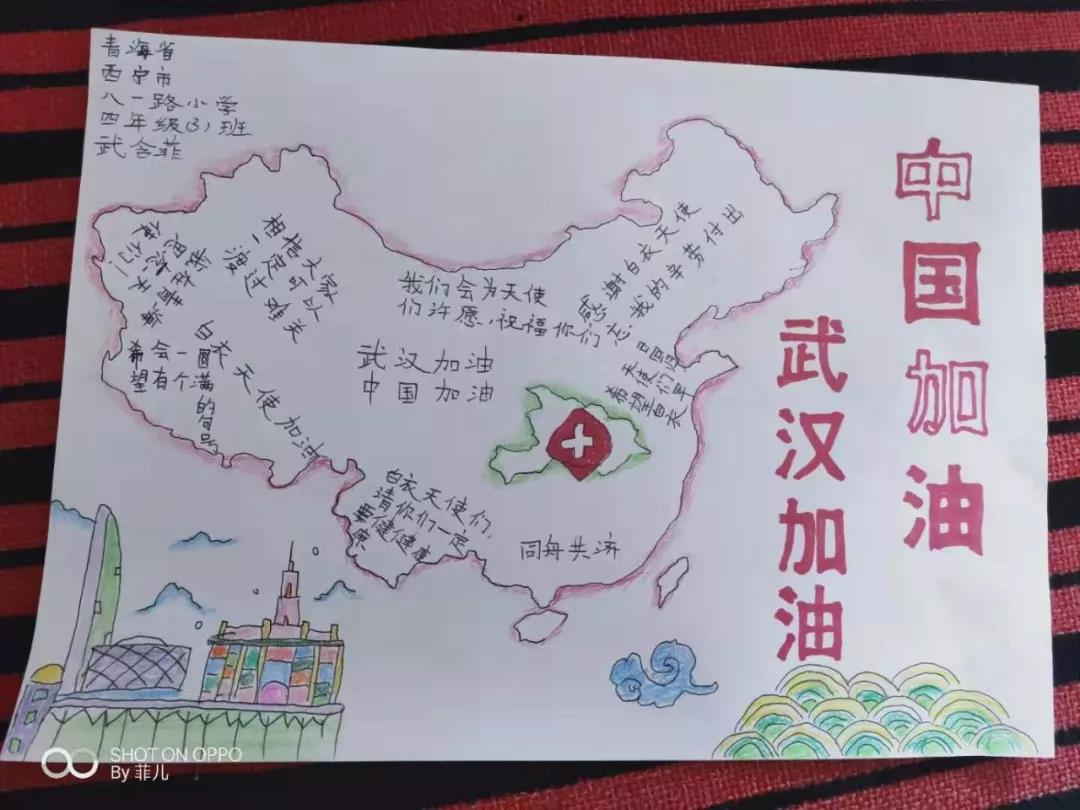 青海省
西宁市
八一路小学
四年级(3)班
武含菲
中国加油
武汉加油
相信大家
一定可以
渡过难关
我们会为天使
们许愿,祝福你们
感谢白衣天使
我的辛劳付出
武汉加油
中国加油
希望白衣
天使们早
白衣天使加油
希望
会有
一个
圆满
的句号
白衣天使们,
请你们一定
要健健康
康
同舟共济
SHOT ON OPPO
By 菲儿